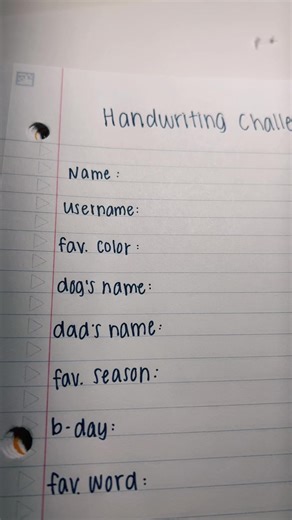 Handwriting Challe
Name :
username:
fav. color :
dog's name:
dad's name:
fav. season:
b-day:
fav. word: